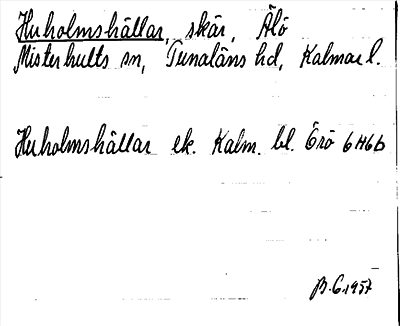 Huholmshällar, skär, Älö
Misterhults sn, Tunaläns hd, Kalmar l.
Huholmshällar ek. Kalm. bl. Örö 6H6b
B.G. 1957